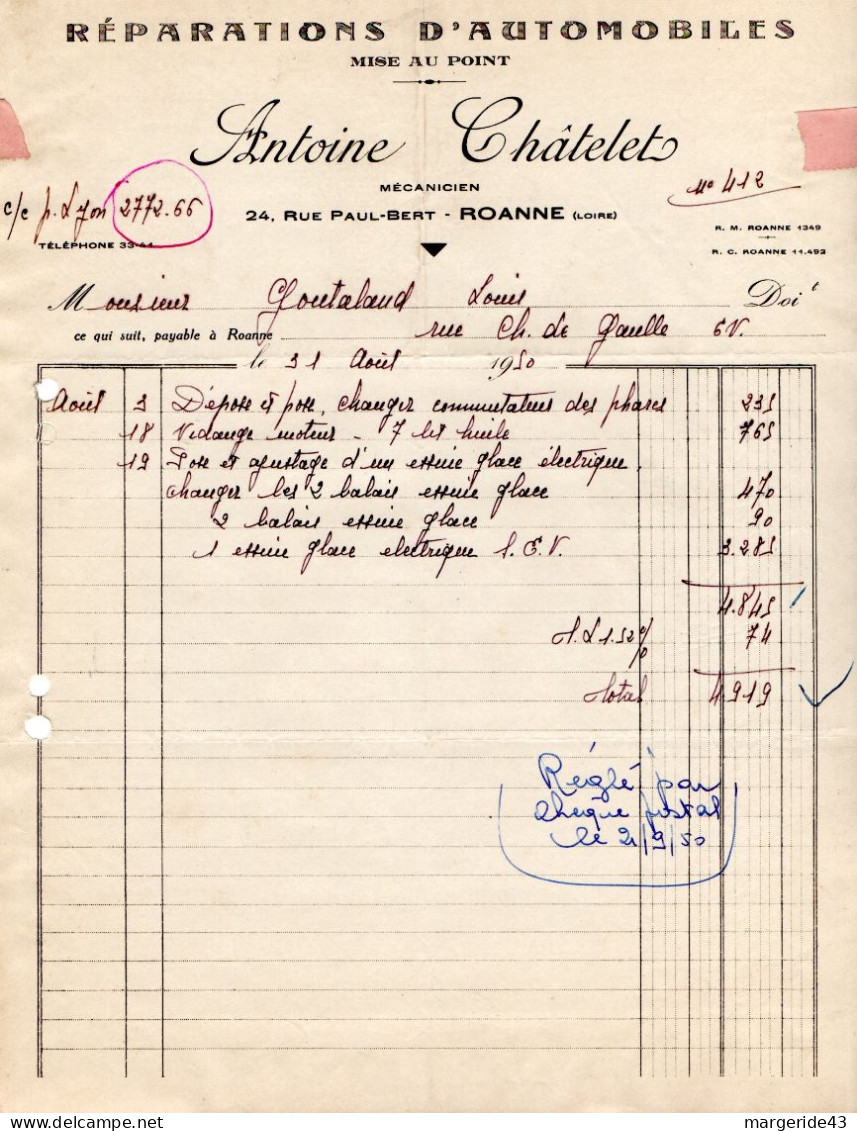 RÉPARATIONS D'AUTOMOBILES
MISE AU POINT
Antoine Châtelet
MÉCANICIEN
N° 412
c/c p. Lyon 2772.66
24, RUE PAUL-BERT - ROANNE (LOIRE)
TÉLÉPHONE 33-44
R. M. ROANNE 1349
R. C. ROANNE 11.492
Monsieur Goutaland Louis Doit
ce qui suit, payable à Roanne rue Ch. de Gaulle EV.
le 31 Août 1950
Août 3 Dépose et pose, changer commutateur des phares 235
18 Vidange moteur - 7 lit huile 765
19 Pose et ajustage d'un essuie glace électrique,
changer les 2 balais essuie glace 470
2 balais essuie glace 90
1 essuie glace electrique S.E.V. 3.285
4.845
1.52% 74
Total 4.919
Réglé par
chèque postal
le 21/9/50
margeride43